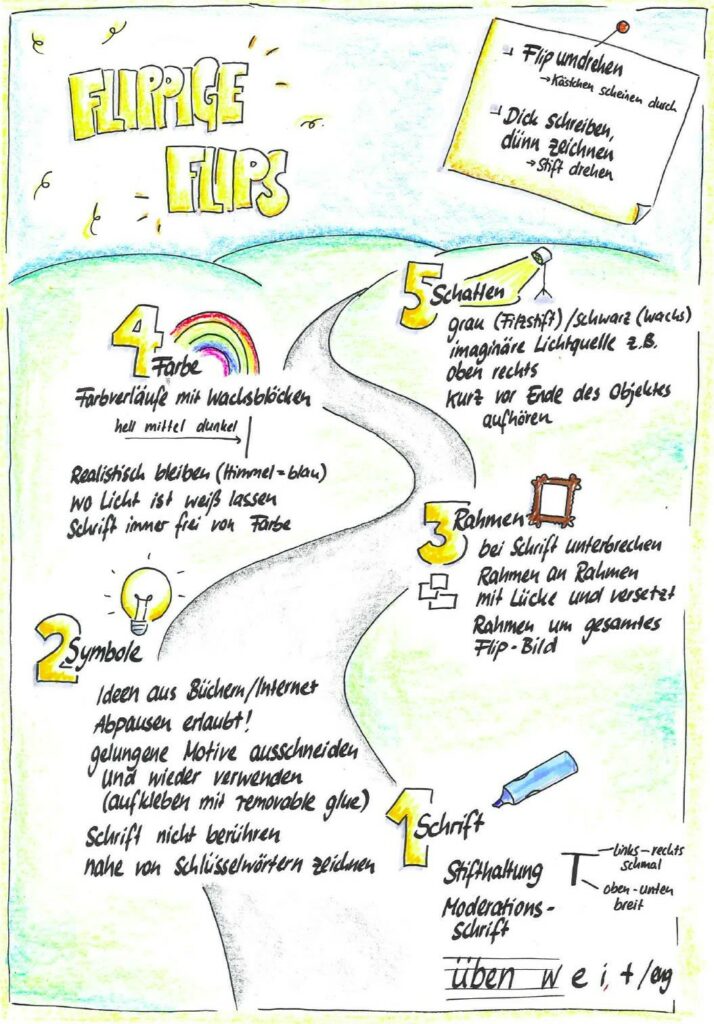 FLIPPIGE
FLIPS
Flip umdrehen
→ Kästchen scheinen durch
Dick schreiben,
dünn zeichnen
→ Stift drehen
5 Schatten
grau (Filzstift) / schwarz (Wachs)
imaginäre Lichtquelle z.B.
oben rechts
kurz vor Ende des Objektes
aufhören
4 Farbe
Farbverläufe mit Wachsblöcken
hell mittel dunkel
Realistisch bleiben (Himmel = blau)
wo Licht ist weiß lassen
Schrift immer frei von Farbe
3 Rahmen
bei Schrift unterbrechen
Rahmen an Rahmen
mit Lücke und versetzt
Rahmen um gesamtes
Flip-Bild
2 Symbole
Ideen aus Büchern/Internet
Abpausen erlaubt!
gelungene Motive ausschneiden
und wieder verwenden
(aufkleben mit removable glue)
Schrift nicht berühren
nahe von Schlüsselwörtern zeichnen
1 Schrift
Stifthaltung
T
links-rechts
schmal
oben-unten
breit
Moderations-
schrift
üben w e i t / eng